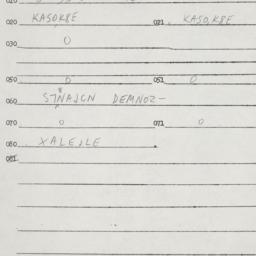 020 KASOK8E 021 KASOK8E
030 0
050 0 051 0
060 STNAJCN DEMNOZ-
070 0 071 0
080 XALEJLE
081